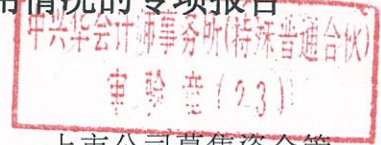 情况的专项报告
中兴华会计师事务所(特殊普通合伙)
审验章(23)
上市公司募集资金管